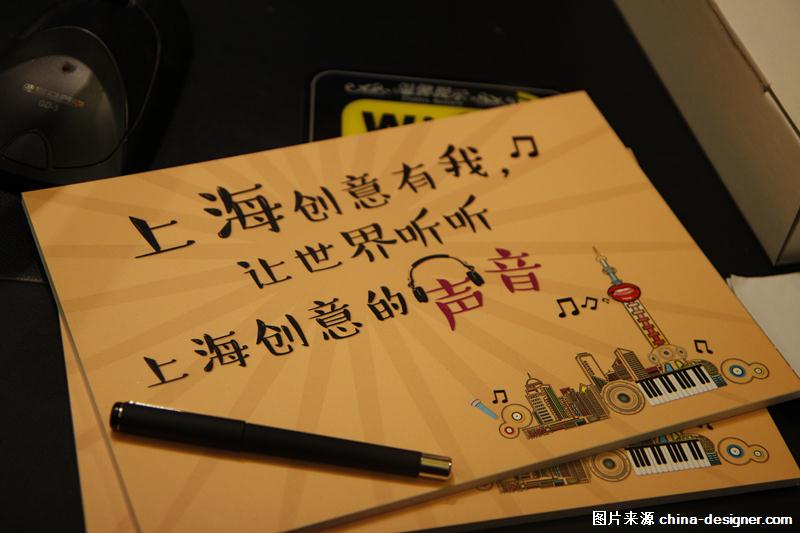 温馨提示
上海创意有我,
让世界听听
上海创意的声音
图片来源 china-designer.com